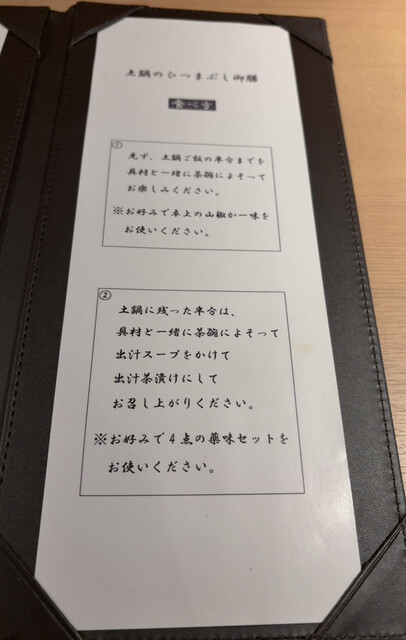 土鍋のひつまぶし御膳
食べ方
①
先ず、土鍋ご飯の半分までを
具材と一緒に茶碗によそって
お楽しみください。
※お好みで卓上の山椒か一味を
お使いください。
②
土鍋に残った半分は、
具材と一緒に茶碗によそって
出汁スープをかけて
出汁茶漬けにして
お召し上がりください。
※お好みで4点の薬味セットを
お使いください。